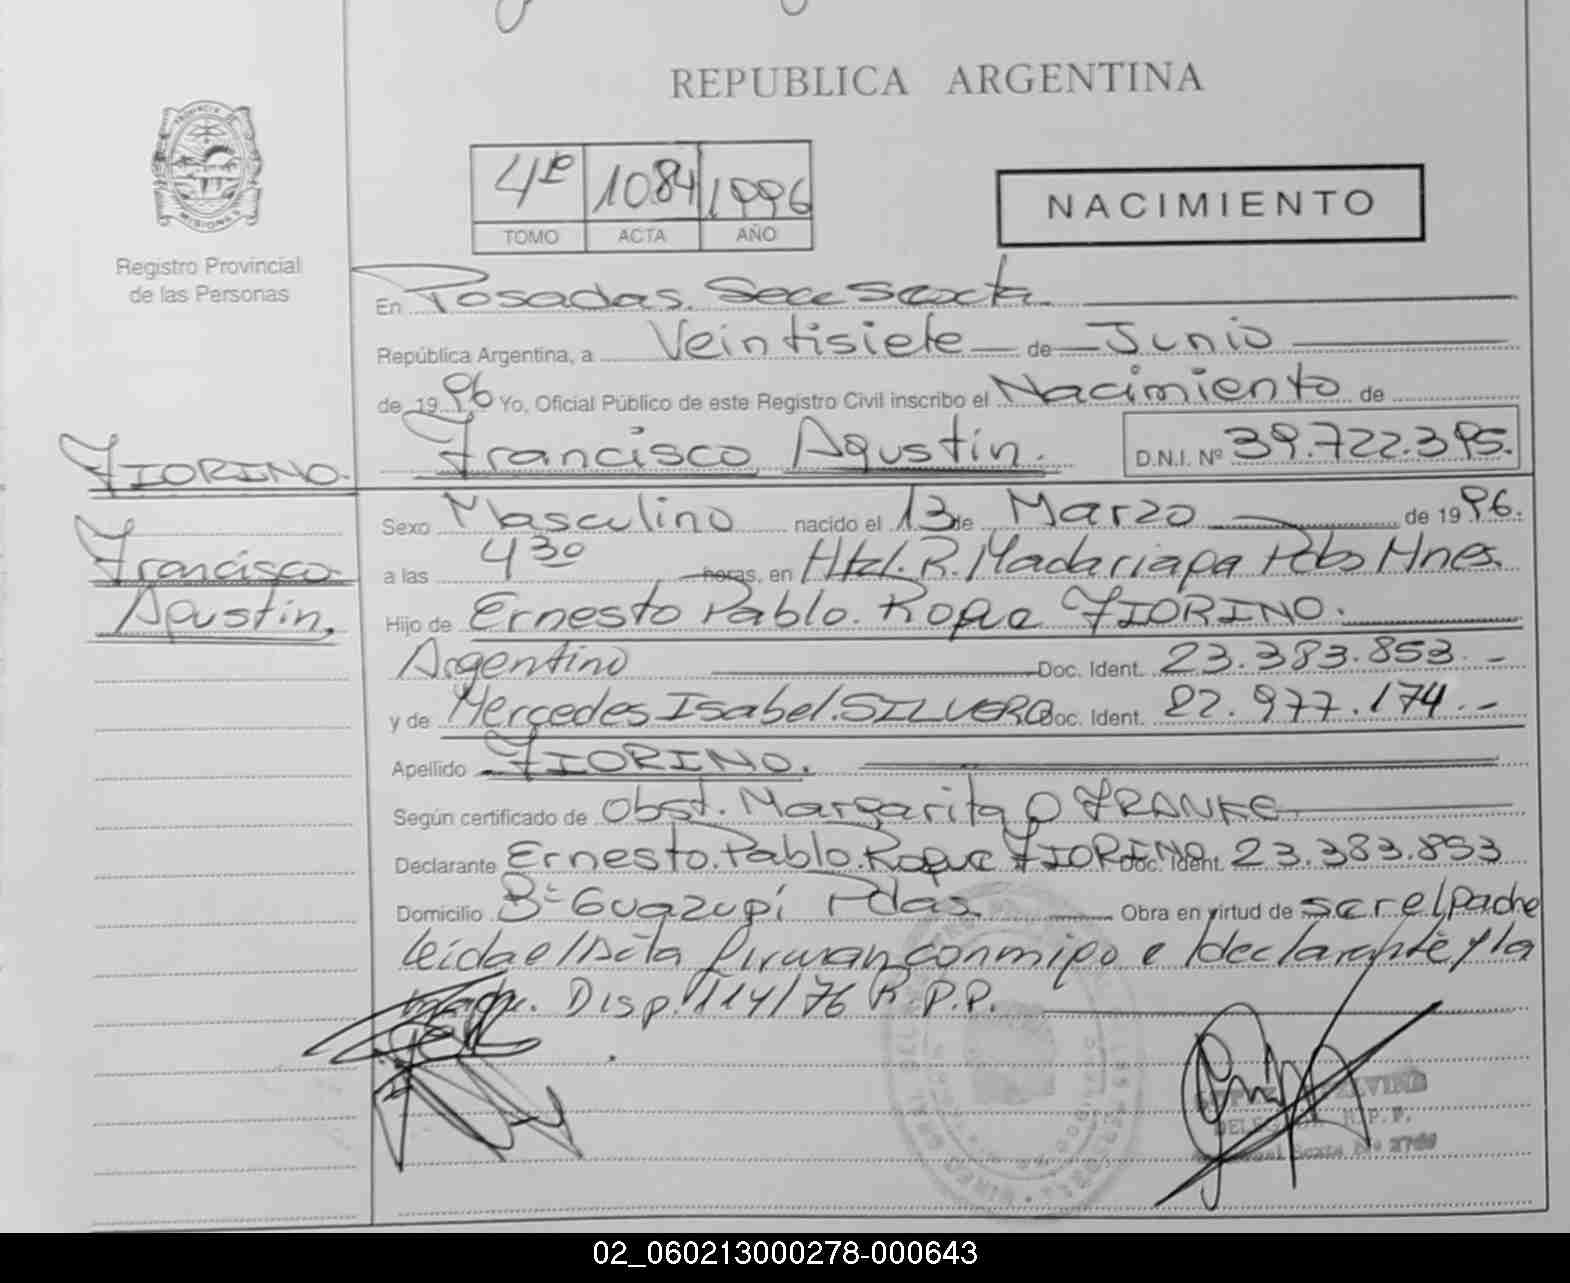 REPUBLICA ARGENTINA
PROVINCIA DE
MISIONES
Registro Provincial
de las Personas
4º 1084 1996
TOMO ACTA AÑO
NACIMIENTO
En Posadas. Secc Sexta
República Argentina, a Veintisiete de Junio
de 1996 Yo, Oficial Público de este Registro Civil inscribo el Nacimiento de
Francisco Agustin. D.N.I. Nº 39.722.395.
FIORINO.
Francisco
Agustin.
Sexo Masculino nacido el 13 de Marzo de 1996.
a las 4 30 horas, en Htal. R. Madariaga Pdas Mnes.
Hijo de Ernesto Pablo. Roque FIORINO.
Argentino Doc. Ident. 23.383.853.-
y de Mercedes Isabel. SILVERO Doc. Ident. 22.977.174.-
Apellido FIORINO.
Según certificado de Obst. Margarita O FRANKE
Declarante Ernesto. Pablo. Roque FIORINO Doc. Ident. 23.383.853
Domicilio Bº Guazupí Pdas. Obra en virtud de ser el padre
leida el Acta firman conmigo el declarante y la
madre. Disp. 114/76 R.P.P.
DELEG R.P.P.
Sexta Nº
02_060213000278-000643